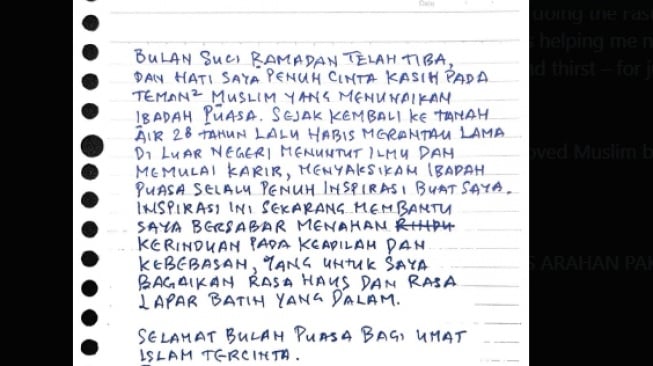 doing the fas
BULAN SUCI RAMADAN TELAH TIBA,
s helping me n
DAN HATI SAYA PENUH CINTA KASIH PADA
nd thirst – for j
TEMAN² MUSLIM YANG MENUNAIKAN
IBADAH PUASA. SEJAK KEMBALI KE TANAH
AIR 28 TAHUN LALU HABIS MERANTAU LAMA
DI LUAR NEGERI MENUNTUT ILMU DAN
oved Muslim b
MEMULAI KARIR, MENYAKSIKAN IBADAH
PUASA SELALU PENUH INSPIRASI BUAT SAYA.
INSPIRASI INI SEKARANG MEMBANTU
SAYA BERSABAR MENAHAN RINDU
KERINDUAN PADA KEADILAN DAN
KEBEBASAN, YANG UNTUK SAYA
S ARAHAN PAK
BAGAIKAN RASA HAUS DAN RASA
LAPAR BATIN YANG DALAM.
SELAMAT BULAN PUASA BAGI UMAT
ISLAM TERCINTA.